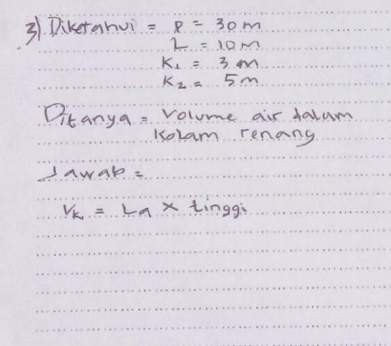 3) Diketahui = P = 30 m
L = 10 m
K1 = 3 m
K2 = 5 m
Ditanya = Volume air dalam
kolam renang
Jawab =
Vk = La × tinggi